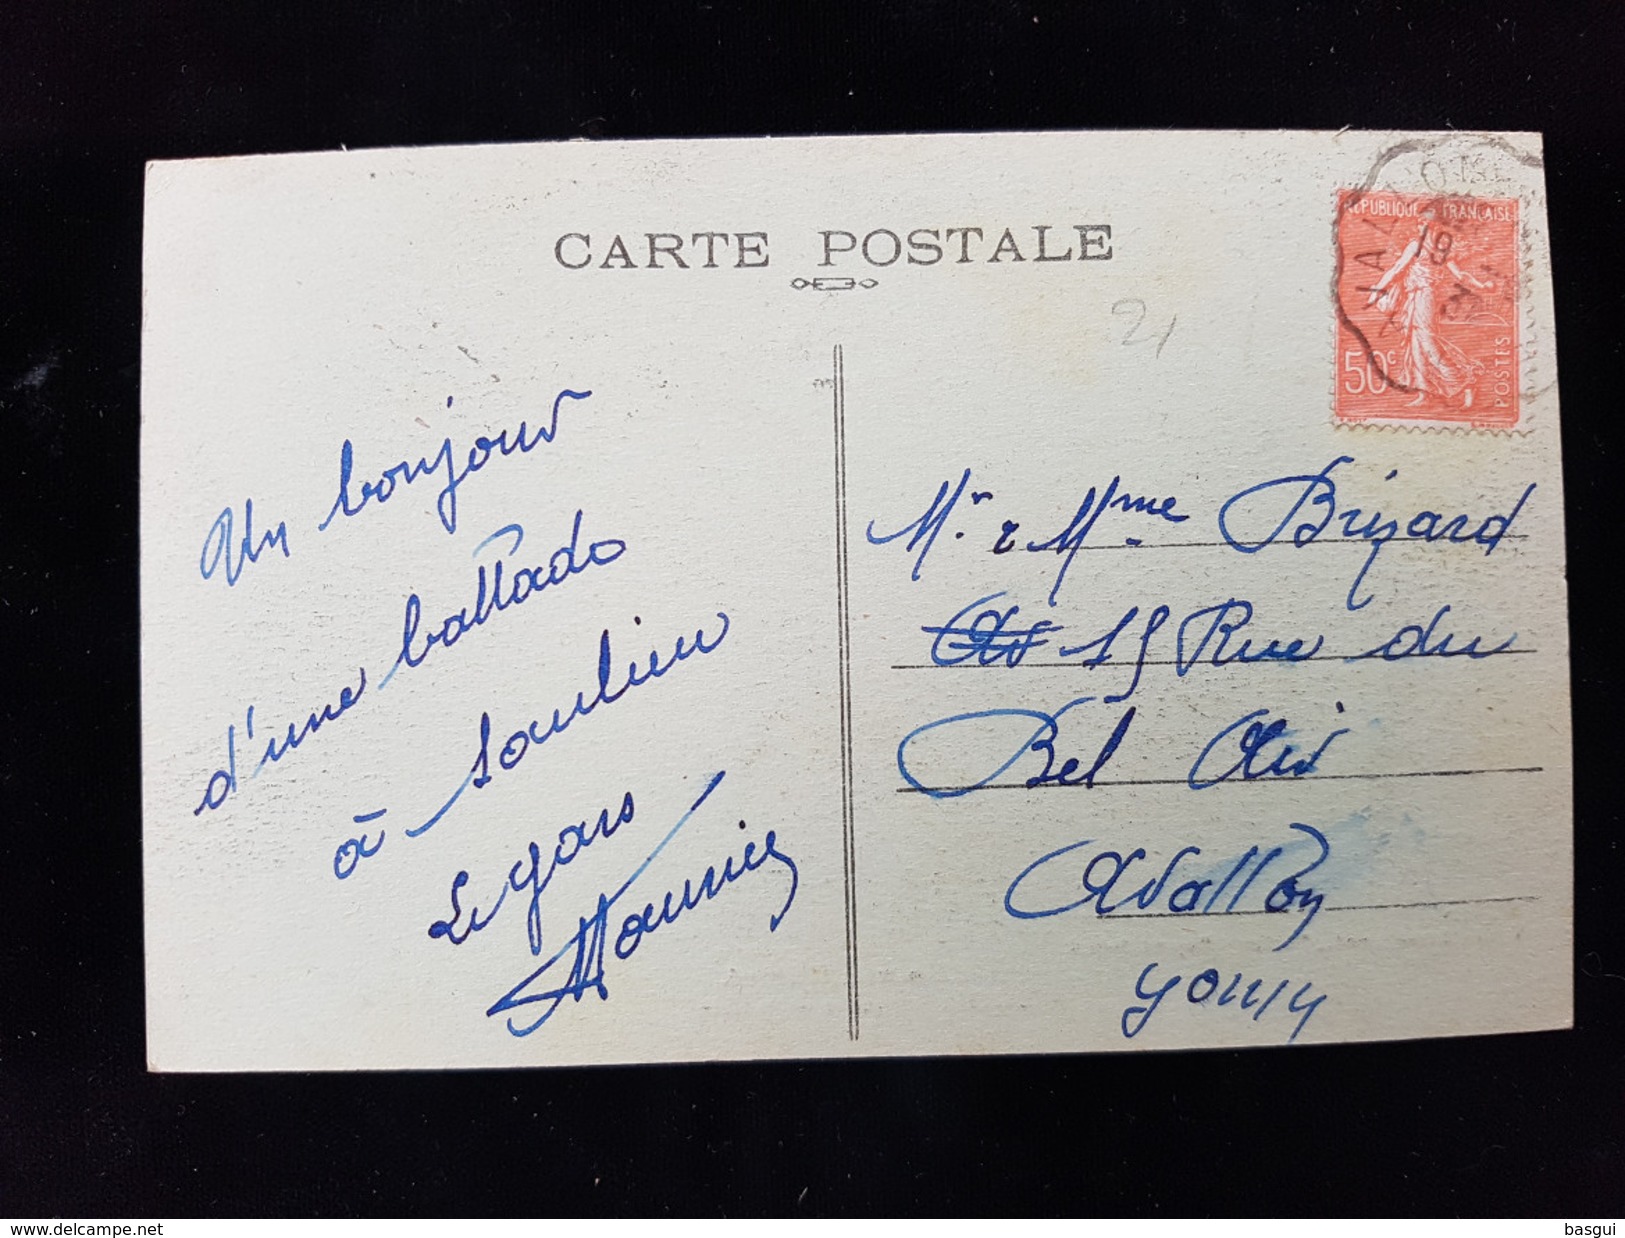 CARTE POSTALE
21
RÉPUBLIQUE FRANÇAISE
50c
POSTES
Un bonjour
d'une ballade
à Saulieu
Le gars
Mr & Mme Brizard
15 Rue du
Bel Air
Avallon
Yonne
delcampe.net
basgui